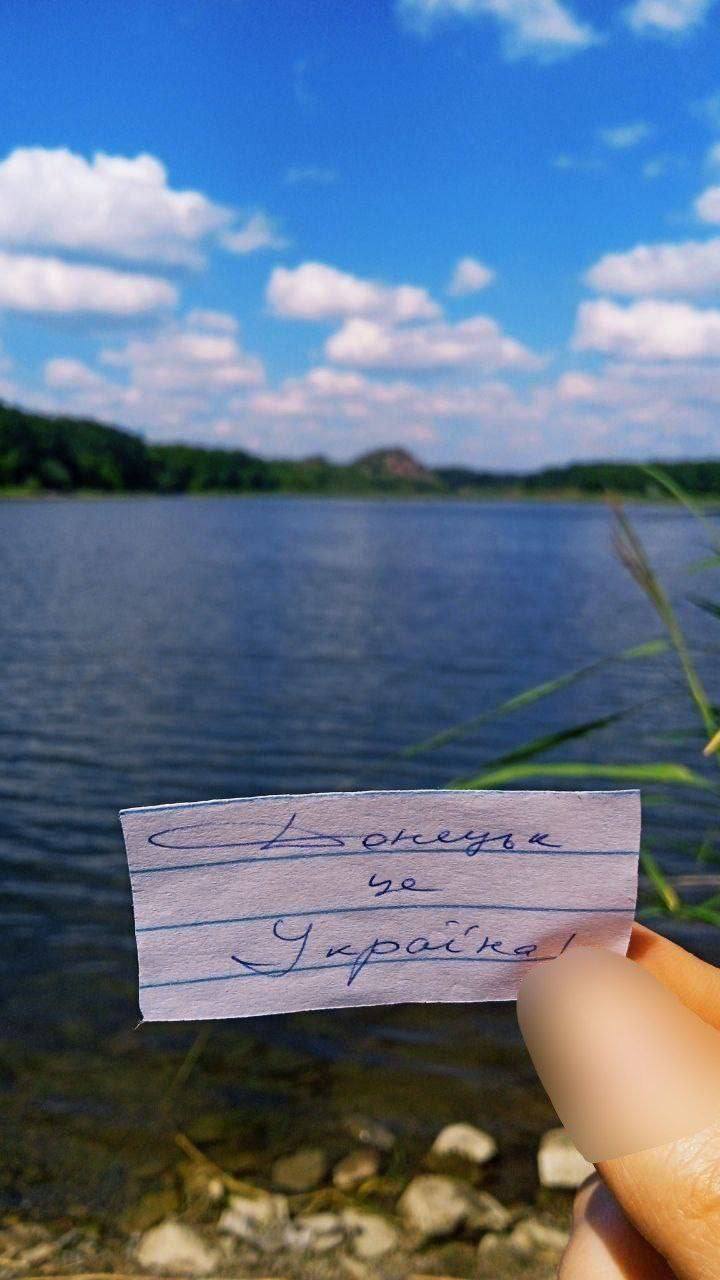 Донецьк
це
Україна!